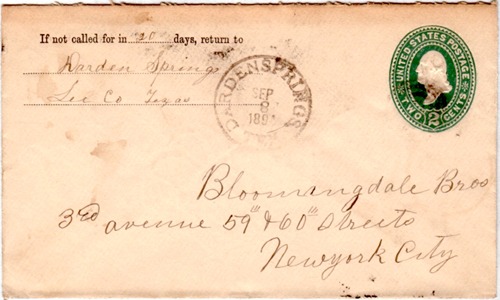 If not called for in 20 days, return to
Darden Springs
Lee Co Texas
DARDEN SPRINGS
SEP
8
TEX.
UNITED STATES POSTAGE
TWO 2 CENTS
Bloomingdale Bros
3rd avenue 59th & 60th Streets
Newyork City